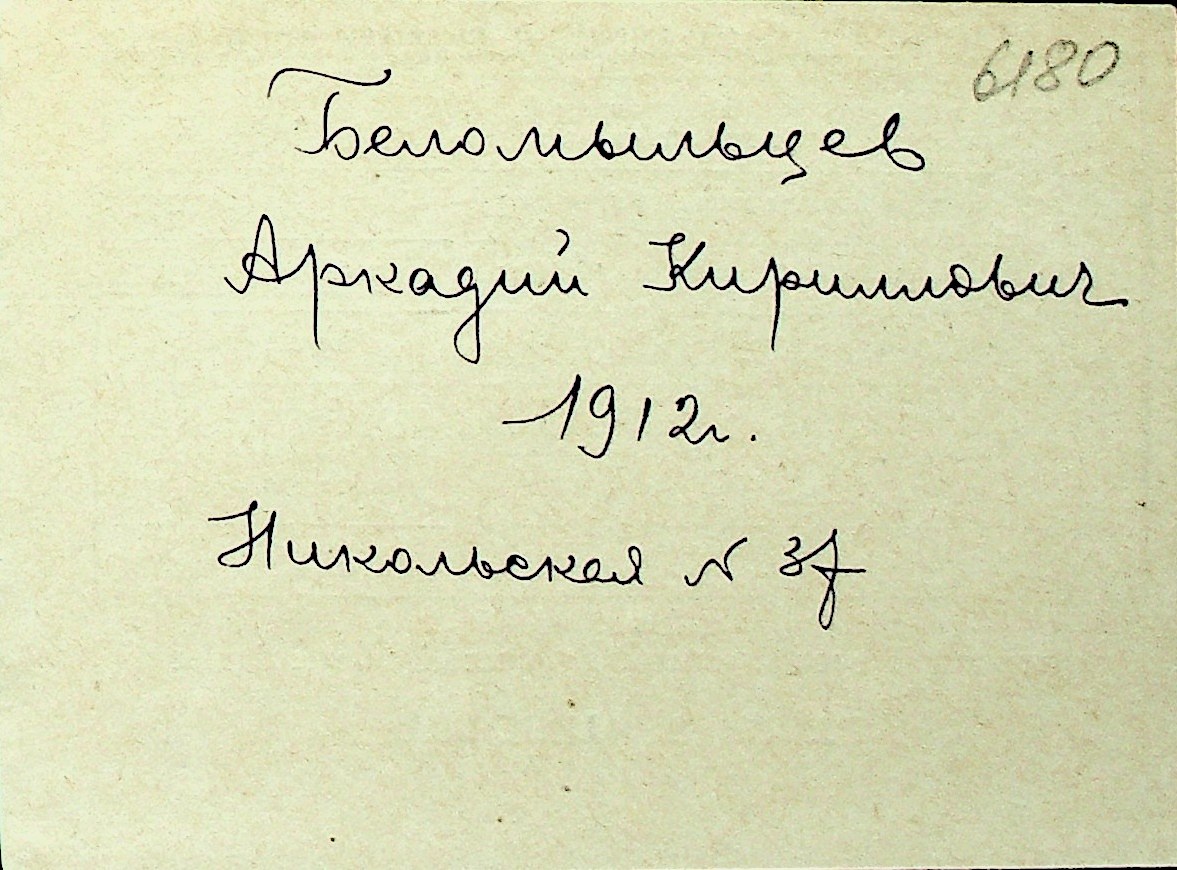 6180
Беломыльцев
Аркадий Кириллович
1912г.
Никольская № 37